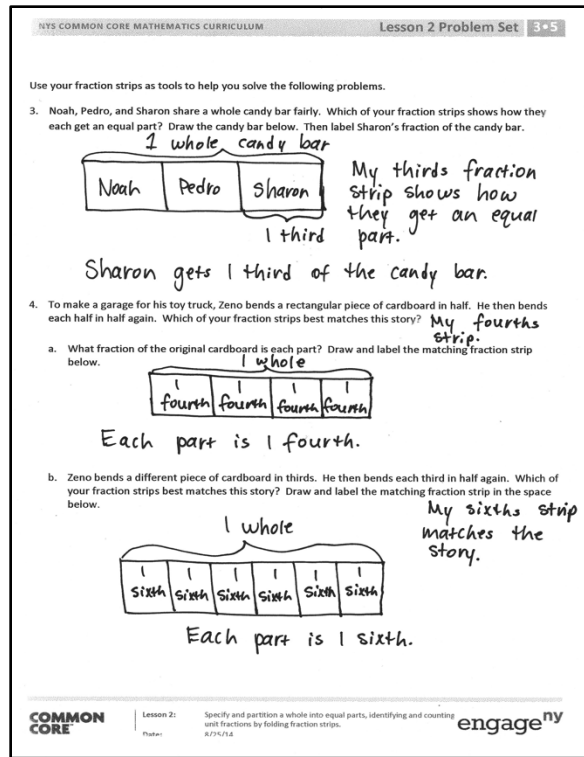 NYS COMMON CORE MATHEMATICS CURRICULUM
Lesson 2 Problem Set 3•5
Use your fraction strips as tools to help you solve the following problems.
3. Noah, Pedro, and Sharon share a whole candy bar fairly. Which of your fraction strips shows how they
each get an equal part? Draw the candy bar below. Then label Sharon's fraction of the candy bar.
1 whole candy bar
Noah Pedro Sharon
1 third
My thirds fraction
strip shows how
they get an equal
part.
Sharon gets 1 third of the candy bar.
4. To make a garage for his toy truck, Zeno bends a rectangular piece of cardboard in half. He then bends
each half in half again. Which of your fraction strips best matches this story?
My fourths
strip.
a. What fraction of the original cardboard is each part? Draw and label the matching fraction strip
below.
1 whole
1 1 1 1
fourth fourth fourth fourth
Each part is 1 fourth.
b. Zeno bends a different piece of cardboard in thirds. He then bends each third in half again. Which of
your fraction strips best matches this story? Draw and label the matching fraction strip in the space
below.
My sixths strip
matches the
story.
1 whole
1 1 1 1 1 1
sixth sixth sixth sixth sixth sixth
Each part is 1 sixth.
COMMON
CORE
Lesson 2:
Date:
Specify and partition a whole into equal parts, identifying and counting
unit fractions by folding fraction strips.
8/25/14
engage ny